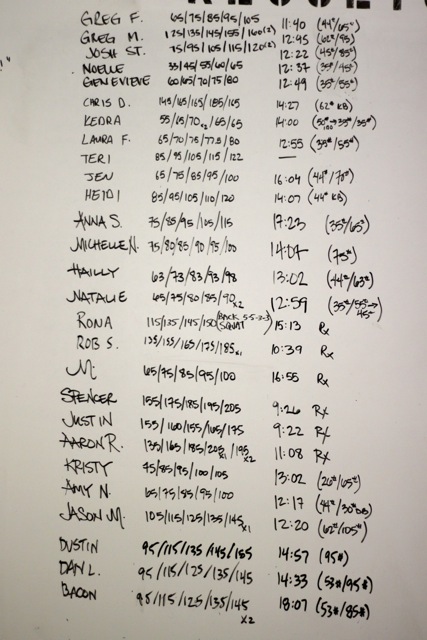 GREG F. 65/75/85/95/105 11:40 (44#/65#)
GREG M. 125/135/145/155/160(2) 12:45 (62#/95)
JOSH ST. 75/95/105/115/120(2) 12:22 (45#/85#)
NOELLE 33/45/55/60/65 12:37 (35#/45#)
GENEVIEVE 60/65/70/75/80 12:49 (35#/55#)
CHRIS D. 145/155/165/185/165 14:27 (62# KB)
KEDRA 55/65/70x2/65/65 14:00
LAURA F. 65/70/75/77.5/80 12:55 (35#/55#)
TERI 85/95/105/115/122 —
JEN 65/75/85/95/100 16:04 (44#/70#)
HEIDI 85/95/105/110/120 14:07 (44# KB)
ANNA S. 75/85/95/105/115 17:23 (35#/65#)
MICHELLE N. 75/80/85/90/95/100 14:07 (75#)
HAILLY 63/73/83/93/98 13:02 (44#/63#)
NATALIE 65/75/80/85/90x2 12:59 (35#/55#→45#
RONA 115/135/145/150 (BACK SQUAT 5-5-3-3) 15:13 Rx
ROB S. 135/155/165/175/185x1 10:39 Rx
M. 65/75/85/95/100 16:55 Rx
SPENCER 155/175/185/195/205 9:26 Rx
JUSTIN 155/160/155/165/175 9:22 Rx
AARON R. 135/165/185/205x1/195x2 11:08 Rx
KRISTY 75/85/95/100/105 13:02 (26#/65#)
AMY N. 65/75/85/95/100 12:17 (44#/30#DB)
JASON M. 105/115/125/135/145x1 12:20 (62#/105#)
DUSTIN 95/115/135/145/155 14:57 (95#)
DAN L. 95/115/125/135/145 14:33 (53#/95#)
BACON 95/115/125/135/145x2 18:07 (53#/85#)